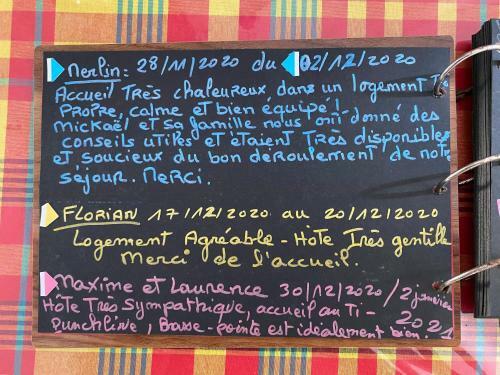 Merlin : 28/11/2020 du 02/12/2020
Accueil Très chaleureux, dans un logement Très
propre, calme et bien équipé!
Mickaël et sa famille nous ont donné des
conseils utiles et étaient Très disponibles
et soucieux du bon déroulement de notre
séjour. Merci.
FLORIAN 17/12/2020 au 20/12/2020
Logement Agréable - Hôte Très gentille
Merci de l'accueil.
Maxime et Laurence 30/12/2020 / 2 janvier
Hôte Très Sympathique, accueil au Ti- 2021
punchline, Basse-pointe est idéalement bien.